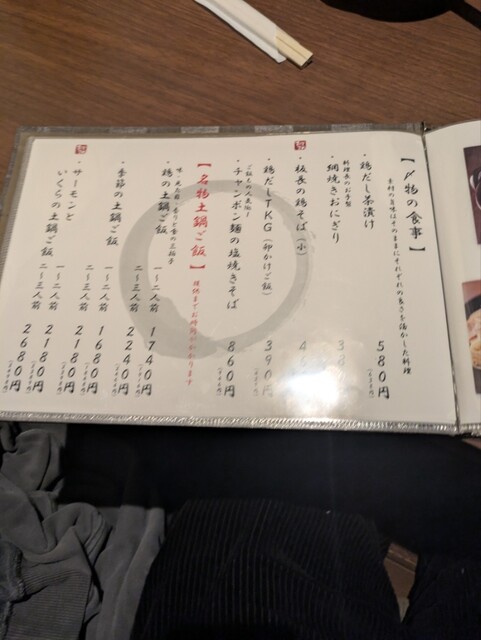 【〆物の食事】
素材の旨味はそのままにそれぞれの良さを活かした料理
・鶏だし茶漬け
580円
料理長のお手製
・網焼きおにぎり
・板長の鶏そば（小）
・鶏だしTKG（卵かけご飯）
390円
ご飯もの人気
・チャンポン麺の塩焼きそば
860円
【名物土鍋ご飯】
提供までお時間がかかります
味・見た目・香りと食の三拍子
・鶏の土鍋ご飯
一〜二人前 1740円
二〜三人前 2240円
・季節の土鍋ご飯
一〜二人前 1680円
二〜三人前 2180円
・サーモンといくらの土鍋ご飯
一〜二人前 2180円
二〜三人前 2680円